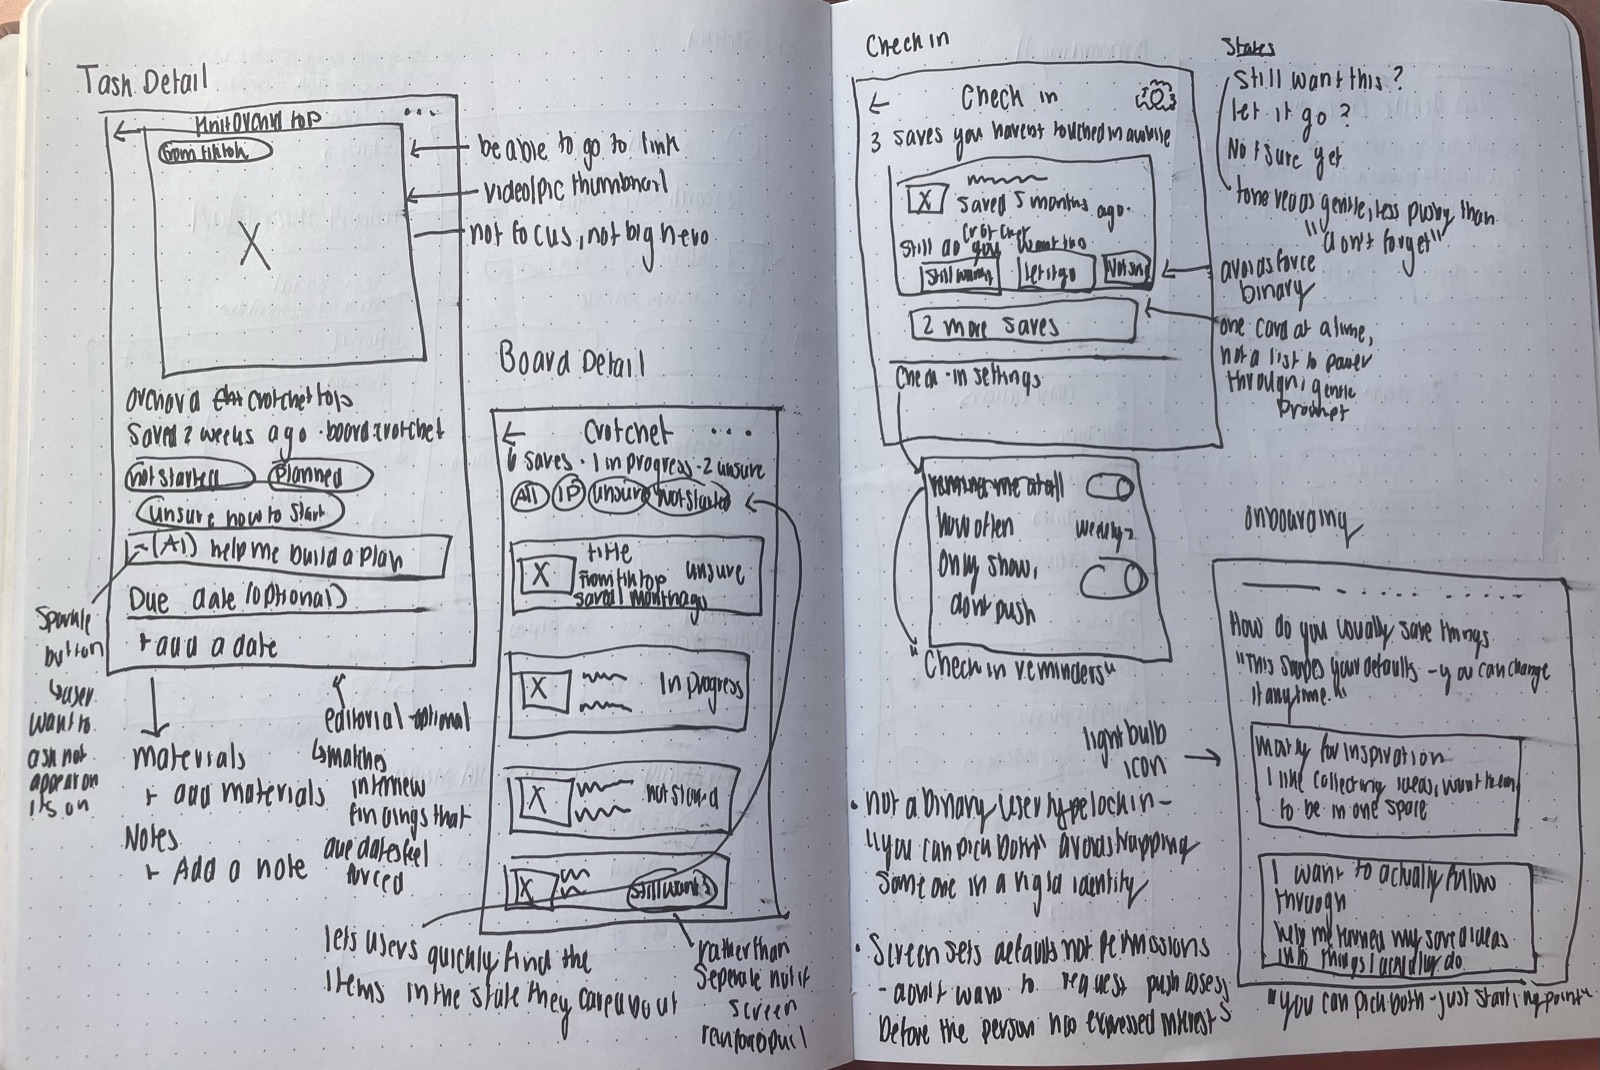 Task Detail
Knit Orchid top
...
from tiktok
X
be able to go to link
video/pic thumbnail
not focus, not big hero
orchid crotchet tops
Saved 2 weeks ago · board: crotchet
not started
Planned
unsure how to start
(AI) help me build a plan
Due date (optional)
+ add a date
Sparkle
button
user
want to
ask not
appear on
its on
materials
+ add materials
Notes
+ Add a note
editorial optional
matches
interview
findings that
due dates feel
forced
Board Detail
Crotchet
...
6 saves · 1 in progress · 2 unsure
All
IP
unsure
not started
X
title
from tiktop
saved 1 month ago
unsure
X
In progress
X
not started
X
still want?
lets users quickly find the
items in the state they care about
rather than
seperate notif
screen
Check in
Check in
3 saves you havent touched in awhile
X
saved 5 months ago.
crotchet
Still do you want two
Still want
Let it go
Not sure
2 more saves
Check-in settings
States
Still want this?
let it go?
Not sure yet
tone reads gentle, less pushy than
"don't forget"
avoids force
binary
one card at a time,
not a list to power
through, gentle
remind me at all
how often
weekly
Only show,
dont push
"Check in reminders"
onboarding
How do you usually save things
"This shapes your defaults - you can change
it anytime."
lightbulb
icon
Mostly for inspiration
I like collecting ideas, want them
to be in one space
I want to actually follow
through
help me turn my saved ideas
into things I actually do
"you can pick both - just starting point"
• not a binary user type lock in -
"you can pick both" avoids trapping
someone in a rigid identity
• Screen sets defaults not permissions
- dont want to request push access
before the person has expressed interest